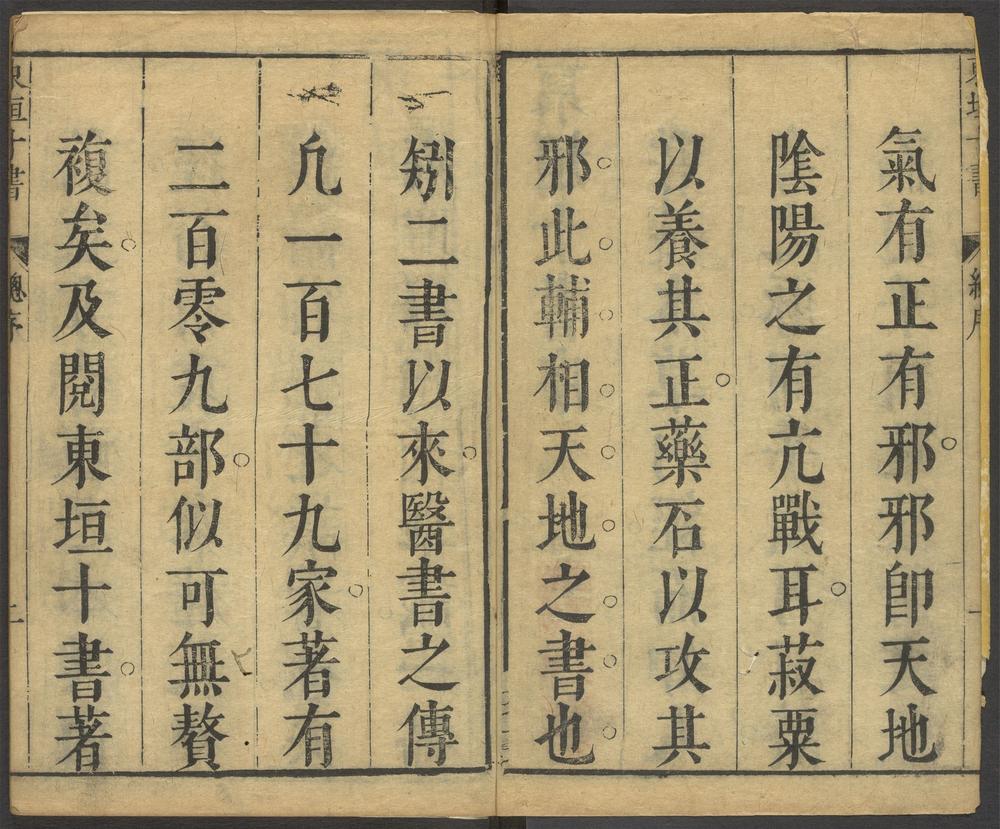 東垣十書 總序
氣有正有邪邪卽天地
陰陽之有亢戰耳菽粟
以養其正藥石以攻其
邪此輔相天地之書也
剏二書以來醫書之傳
凢一百七十九家著有
二百零九部似可無贅
複矣及閱東垣十書著
東垣十書 總序 二